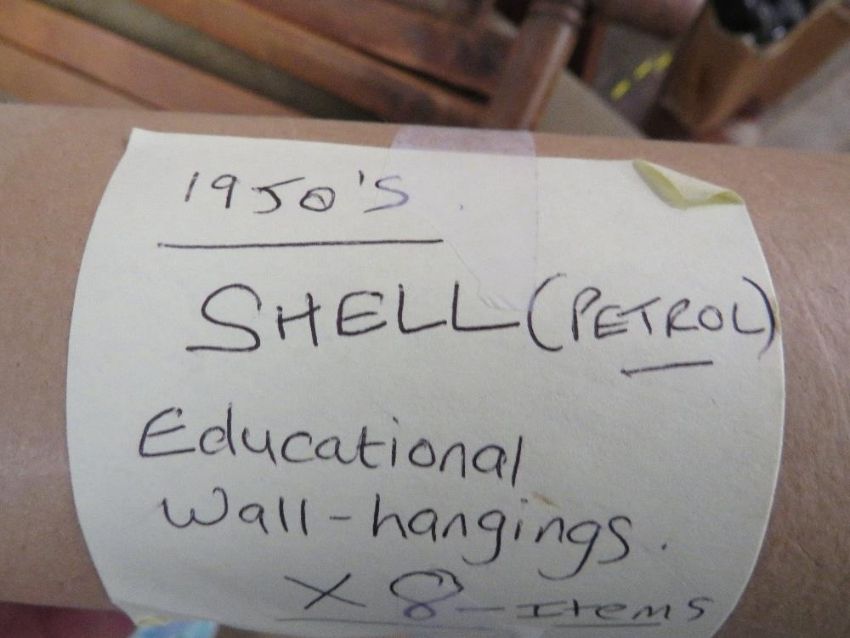 1950's
SHELL (PETROL)
Educational
wall-hangings.
X 8 - Items